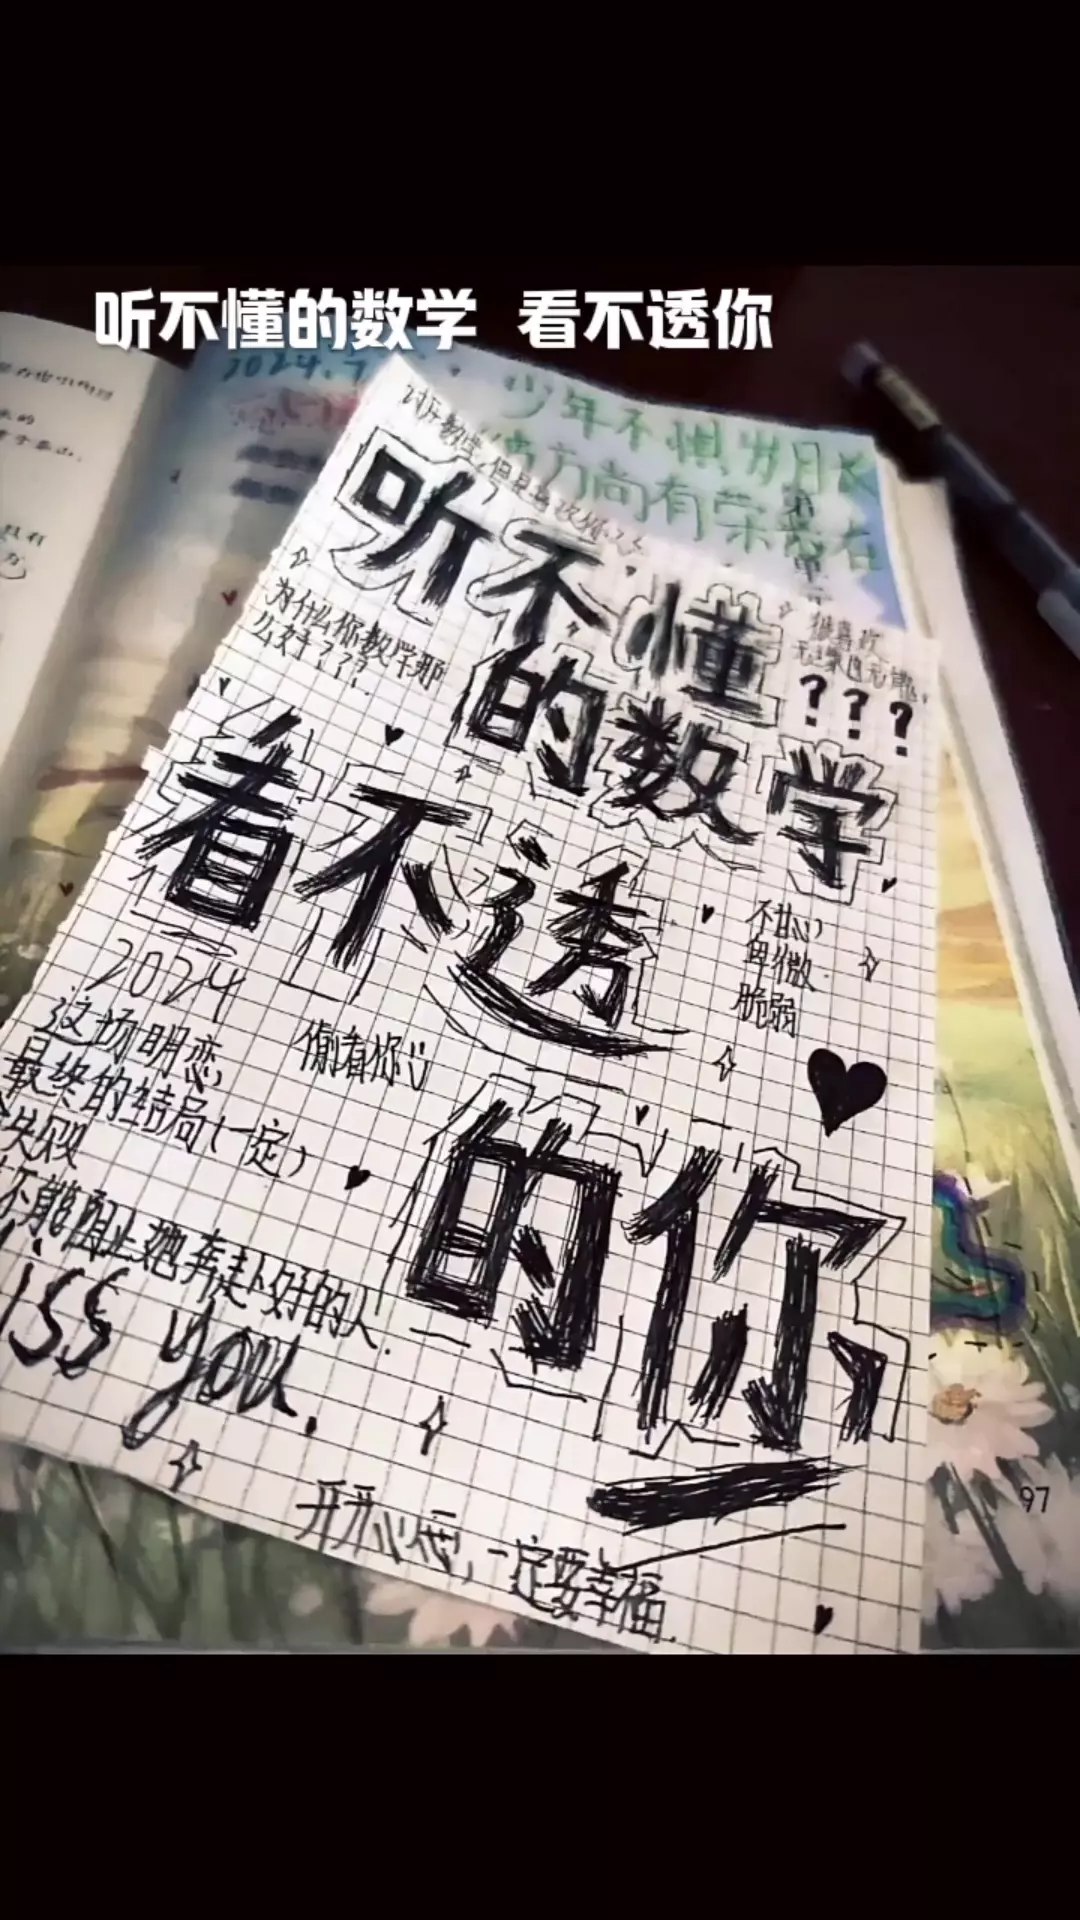 听不懂的数学 看不透你
2024.7
少年不惧岁月长
彼方尚有荣光在
讨厌数学,但是喜欢你
听不懂
为什么你数学那
么好???
的数学
???
看不透
不甘心
卑微
脆弱
2024
偷看你
这场明恋
最终的结局(一定)
失败
不能阻止她奔走下好的人.
iss you.
的你
开开心心,一定要幸福.
97